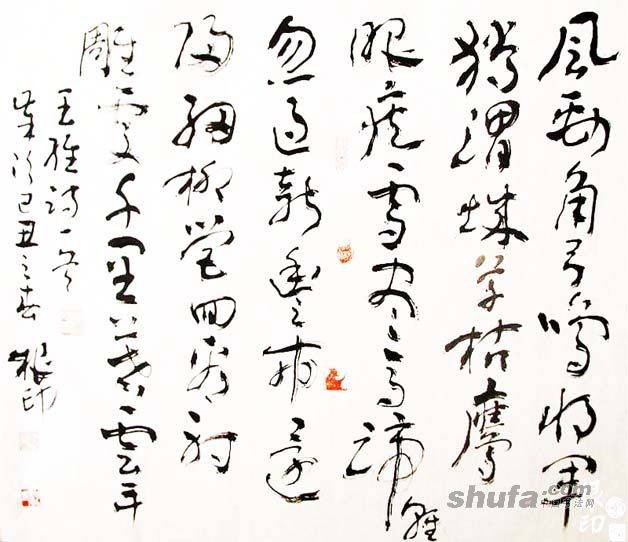 風勁角弓鳴將軍
獵渭城草枯鷹
眼疾雪尽馬蹄輕
忽過新豐市還
歸細柳營回看射
雕處千里暮雲平
王維詩一首
己丑之春 根印
shufa.com
中国书法网